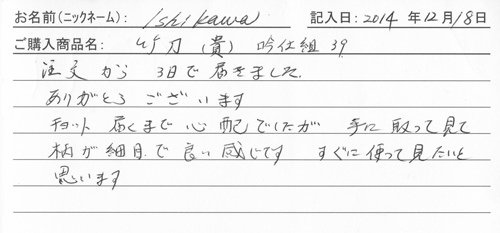 お名前(ニックネーム): Ishikawa 記入日: 2014年12月18日
ご購入商品名: 竹刀(貴) 吟仕組 39
注文から 3日で届きました.
ありがとう ございます
チョット 届くまで心配でしたが 手に取って見て
柄が細目で良い感じです すぐに使って見たいと
思います